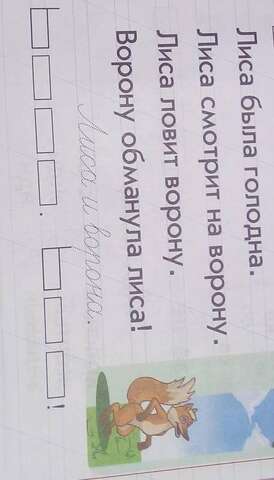 Лиса была голодна.
Лиса смотрит на ворону.
Лиса ловит ворону.
Ворону обманула лиса!
Лиса и ворона.